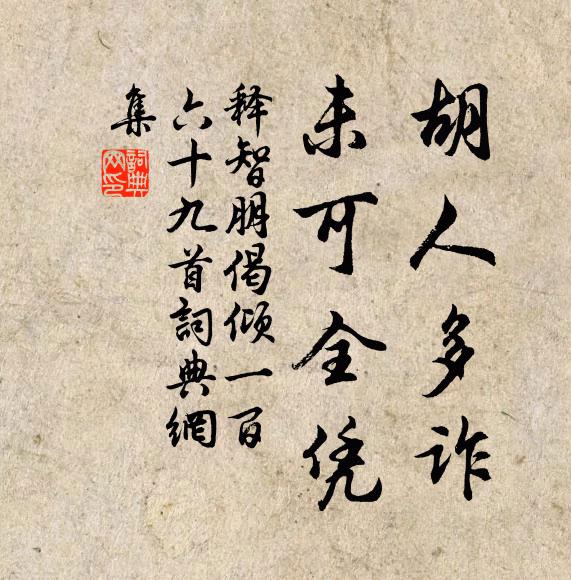 胡人多诈
未可全凭
释智朋偈倾一百
六十九首詞典網
集
詞典
网印